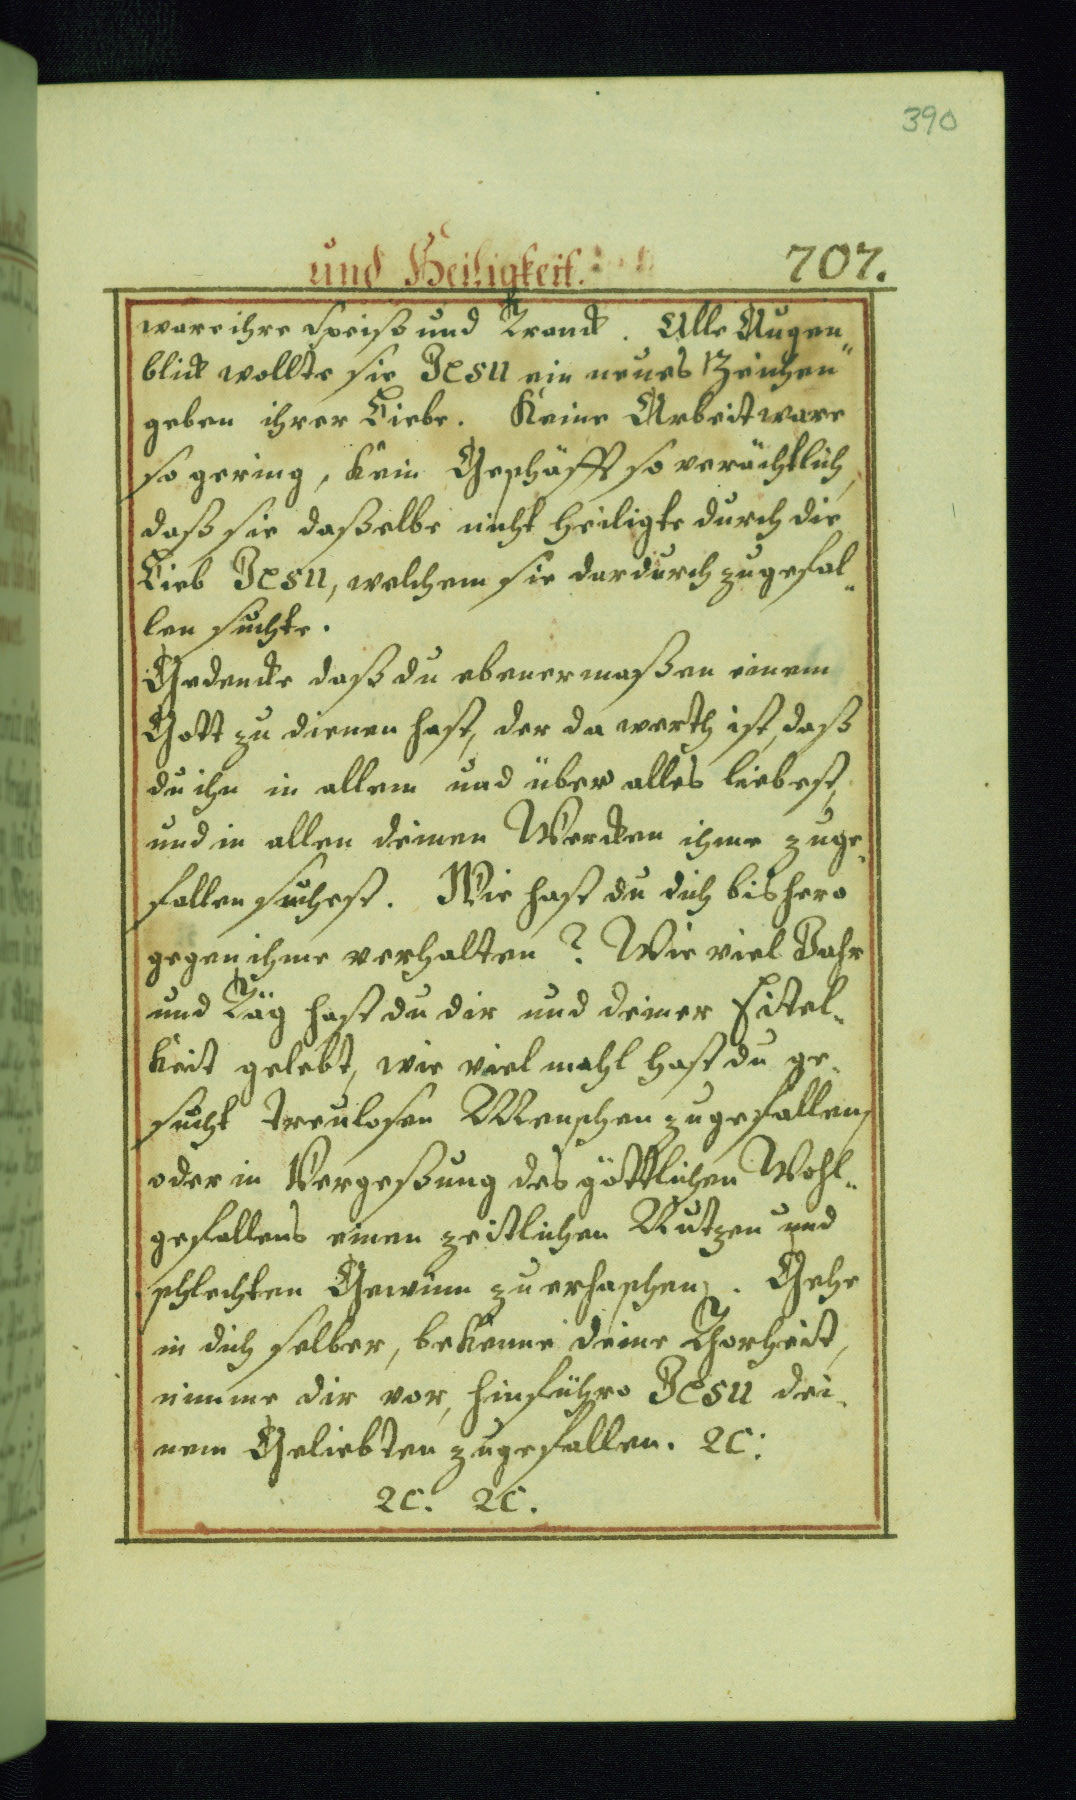 390
und Heiligkeit. 707.
ware ihre Speiß und Tranck. Alle Augen„
blick wollte sie Jesu ein neues Zeichen
geben ihrer Liebe. Keine Arbeit ware
so gering, kein Geschäfft so verächtlich,
daß sie daßelbe nicht heiligte durch die
Lieb Jesu, welchem sie dardurch zugefal„
len suchte.
Gedencke daß du ebenermaßen einem
Gott zu dienen hast, der da werth ist, daß
du ihn in allem und über alles liebest,
und in allen deinen Wercken ihme zuge„
fallen suchest. Wie hast du dich bishero
gegen ihme verhalten? Wie viel Jahr
und Täg hast du dir und deiner Eitel„
keit gelebt, wie viel mahl hast du ge„
sucht treulosen Menschen zugefallen,
oder in Vergeßung des göttlichen Wohl„
gefallens einen zeitlichen Nutzen und
schlechten Gewinn zu erhaschen. Gehe
in dich selber, bekenne deine Thorheit,
nimme dir vor, hinführo Jesu dei„
nem Geliebten zugefallen. 2C:
2C: 2C.